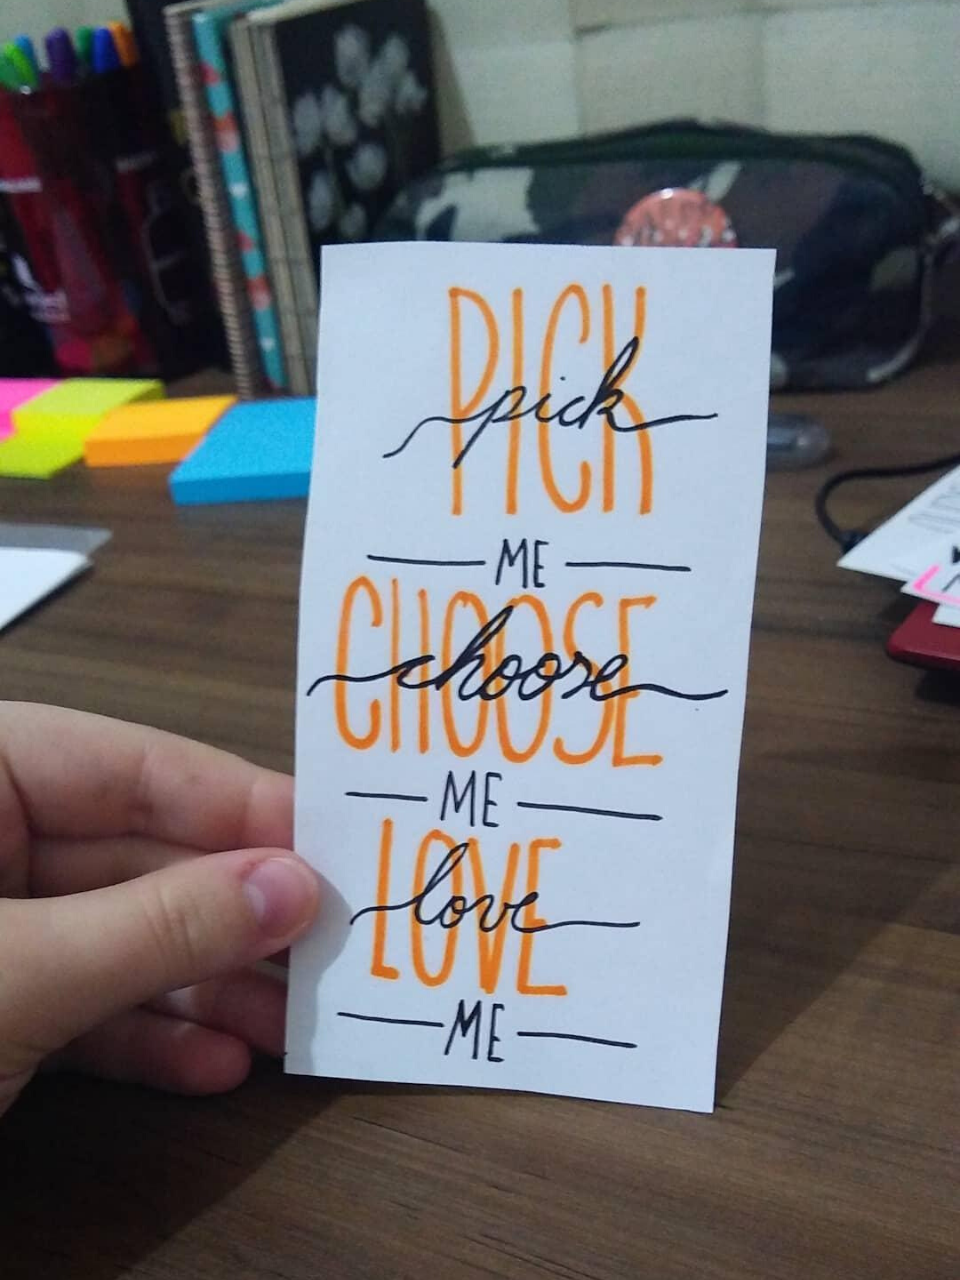 PICK
pick
ME
CHOOSE
choose
ME
LOVE
love
ME